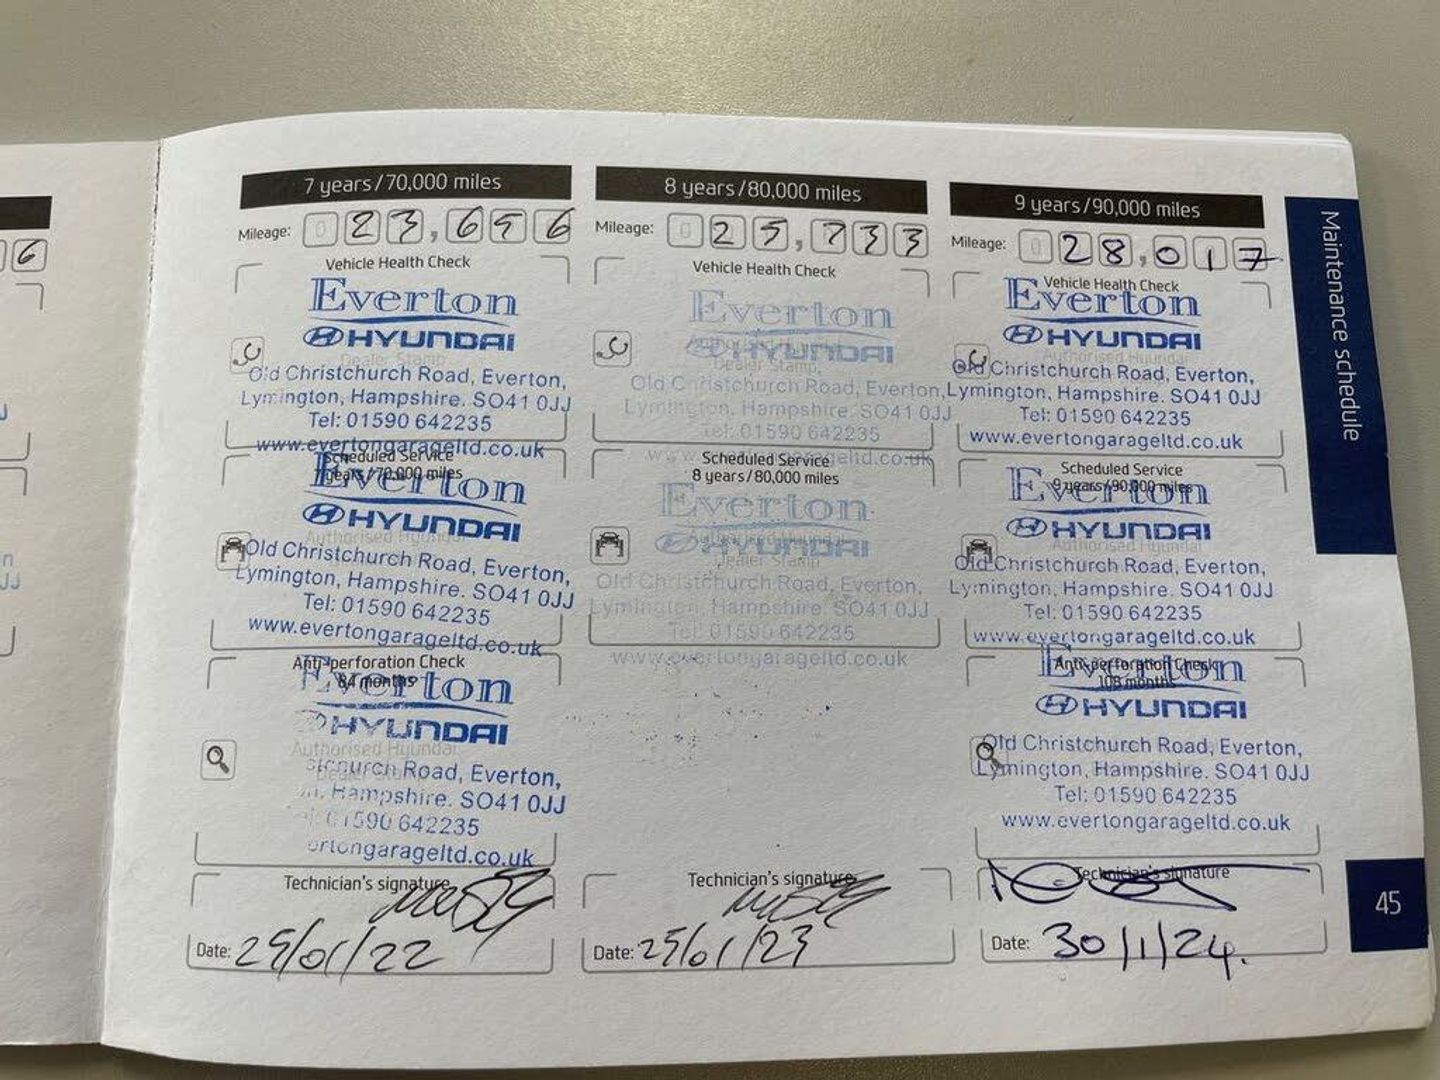 6
J
n
JJ
7 years/70,000 miles
Mileage: 0 2 3 , 6 9 6
Vehicle Health Check
Everton
HYUNDAI
Dealer Stamp
Old Christchurch Road, Everton,
Lymington, Hampshire. SO41 0JJ
Tel: 01590 642235
www.evertongarageltd.co.uk
Scheduled Service
7 years/70,000 miles
Everton
HYUNDAI
Authorised Hyundai
Old Christchurch Road, Everton,
Lymington, Hampshire. SO41 0JJ
Tel: 01590 642235
www.evertongarageltd.co.uk
Anti-perforation Check
84 months
Everton
HYUNDAI
Authorised Hyundai
stchurch Road, Everton,
n, Hampshire. SO41 0JJ
01590 642235
ertongarageltd.co.uk
Technician's signature
Date: 25/01/22
8 years/80,000 miles
Mileage: 0 2 5 , 7 3 3
Vehicle Health Check
Everton
HYUNDAI
Dealer Stamp
Old Christchurch Road, Everton,
Lymington, Hampshire. SO41 0JJ
Tel: 01590 642235
www.evertongarageltd.co.uk
Scheduled Service
8 years/80,000 miles
Everton
HYUNDAI
Authorised Hyundai
Dealer Stamp
Old Christchurch Road, Everton,
Lymington, Hampshire. SO41 0JJ
Tel: 01590 642235
www.evertongarageltd.co.uk
Technician's signature
Date: 25/01/23
9 years/90,000 miles
Mileage: 0 2 8 , 0 1 7
Vehicle Health Check
Everton
HYUNDAI
Authorised Hyundai
Old Christchurch Road, Everton,
Lymington, Hampshire. SO41 0JJ
Tel: 01590 642235
www.evertongarageltd.co.uk
Scheduled Service
9 years/90,000 miles
Everton
HYUNDAI
Authorised Hyundai
Old Christchurch Road, Everton,
Lymington, Hampshire. SO41 0JJ
Tel: 01590 642235
www.evertongarageltd.co.uk
Anti-perforation Check
108 months
Everton
HYUNDAI
Old Christchurch Road, Everton,
Lymington, Hampshire. SO41 0JJ
Tel: 01590 642235
www.evertongarageltd.co.uk
Technician's signature
Date: 30/1/24.
Maintenance schedule
45